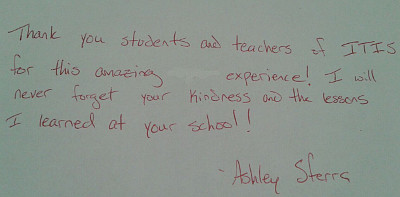 Thank you students and teachers of ITIS
for this amazing experience! I will
never forget your kindness and the lessons
I learned at your school!
- Ashley Sferra